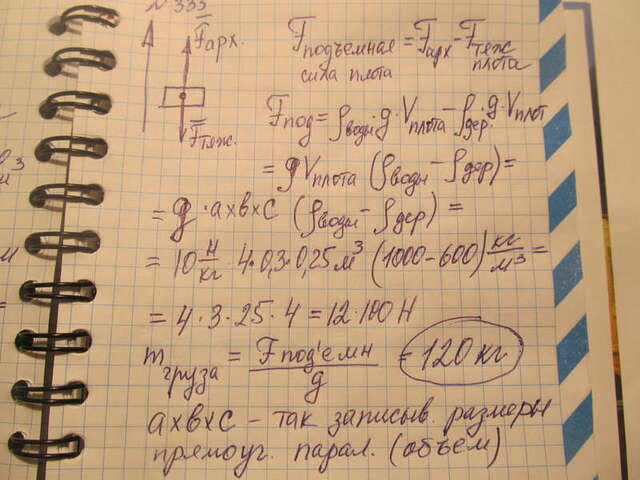 N 333
Fарх.
Fтяж.
Fподъемная сила плота = Fарх - Fтяж плота
Fпод = ρводы·g·Vплота - ρдер·g·Vплот
= gVплота (ρводы - ρдер) =
= g·ахвхс (ρводы - ρдер) =
= 10 Н/кг · 4·0,3·0,25м³ (1000-600) кг/м³ =
= 4·3·25·4 = 12·100Н
mгруза = Fпод'емн / g = 120 кг
ахвхс - так записыв. размеры
прямоуг. парал. (объем)